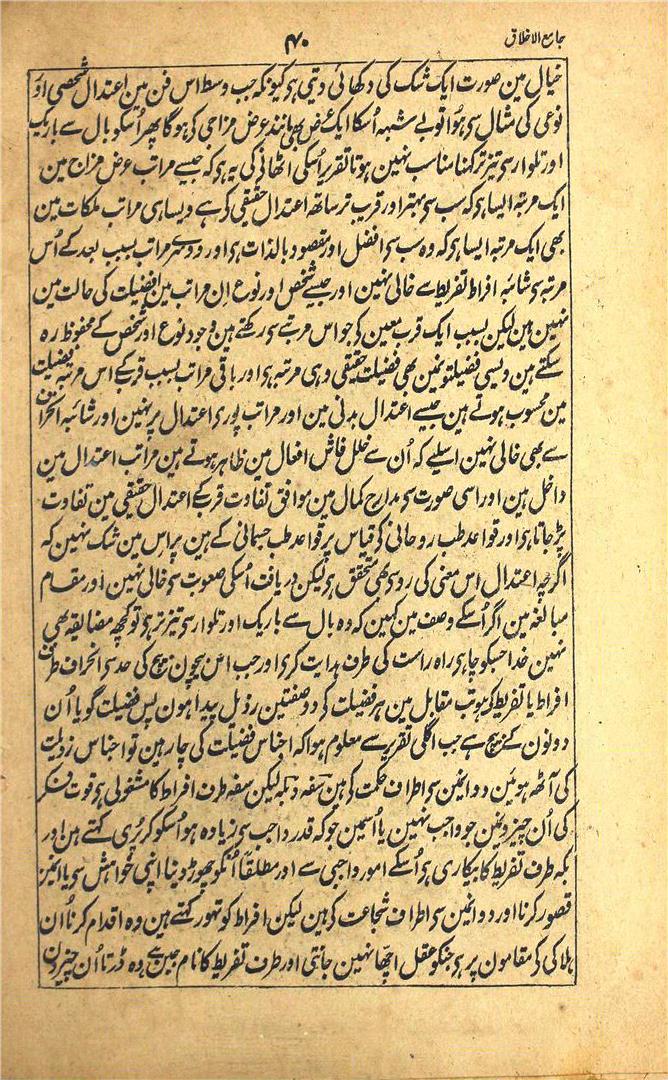 جامع الاخلاق
۴۰
خیال مین صورت ایک شک کی دکھائی دیتی ہی کیونکہ جب وسط اس فن مین اعتدال شخصی اور
نوعی کی مثال سی ہوا تو بے شبہہ اُسکا ایک عرض بھی مانند عرض مزاجی کی ہوگا پھر اُسکو بال سے باریک
اور تلوار سی تیز تر کہنا مناسب نہین ہوتا تقریر اُسکی اٹھانی کی یہ ہی کہ جیسے مراتب عرض مزاج مین
ایک مرتبہ ایسا ہی کہ سب سی بہتر اور قریب تر ساتھ اعتدال حقیقی کی ہے ویسا ہی مراتب ملکات مین
بھی ایک مرتبہ ایسا ہی کہ وہ سب سی افضل اور مقصود بالذات ہی اور دوسرے مراتب بسبب بعد کے اُس
مرتبہ سی شائبہ افراط تفریط سے خالی نہین اور جیسے شخص اور نوع اِن مراتب مین افضلیت کی حالت مین
نہین ہین لیکن بسبب ایک قرب معین کی جو اس مرتبے سی رکھتے ہین وجود نوع اور شخص کے محفوظ رہ
سکتے ہین ویسی فضیلتونمین بھی فضیلت حقیقی وہی مرتبہ ہی اور باقی مراتب بسبب قرب کے اس مرتبہ سی فضیلت
مین محسوب ہوتے ہین جیسے اعتدال بدنی مین اور مراتب پوری اعتدال پر نہین اور شائبہ انحراف
سے بھی خالی نہین اسلیے کہ اُن سے خلل فاش افعال مین ظاہر ہوتے ہین مراتب اعتدال مین
داخل ہین اور اسی صورت سی مدارج کمال مین موافق تفاوت قرب کے اعتدال حقیقی مین تفاوت
پڑجاتا ہی اور قواعد طب روحانی کی قیاس پر قواعد طب جسمانی کے ہین پر اس مین شک نہین کہ
اگرچہ اعتدال اس معنی کی رو سی بھی متحقق ہی لیکن دریافت اُسکی صعوبت سی خالی نہین اور مقام
مبالغہ مین اگر اُسکے وصف مین کہین کہ وہ بال سے باریک اور تلوار سی تیز تر ہی تو کچھ مضایقہ بھی
نہین خدا جسکو چاہی راہ راست کی طرف ہدایت کری اور جب اس بیچون بیچ کی حد سی انحراف طرف
افراط یا تفریط کی ہو تب مقابل مین ہر فضیلت کی دو صفتین رذیل پیدا ہون پس فضیلت گویا اُن
دونون کے بیچ ہے جب اگلی تقریر سے معلوم ہوا کہ اجناس فضیلت کی چار ہین تو اجناس رذیلت
کی آٹھ ہوئین دو انمین سی اطراف حکمت کی ہین سفہ و بلہ لیکن سفہ طرف افراط کا مشغولی ہی قوت فکر
کی اُن چیزونمین جو واجب نہین یا اُسمین جو کہ قدر واجب سی زیادہ ہو اُسکو گربزی کہتے ہین اور
بلہ طرف تفریط کا بیکاری ہی اُسکے امور واجبی سے اور مطلقاً اُنکو چھوڑ دینا اپنی خواہش سی یا انمین
قصور کرنا اور دو انمین سی اطراف شجاعت کی ہین لیکن افراط کو تہور کہتے ہین وہ اقدام کرنا اُن
ہلاکی کی مقامون پر ہی جنکو عقل اچھا نہین جانتی اور طرف تفریط کا نام جبن ہے وہ ڈرنا اُن چیزون